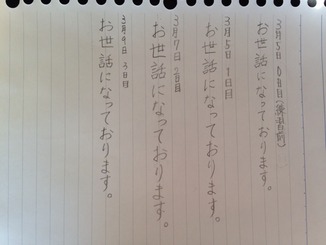 3月5日 0日目(練習前)
お世話になっております。
3月5日 1日目
お世話になっております。
3月7日 2日目
お世話になっております。
3月9日 3日目
お世話になっております。